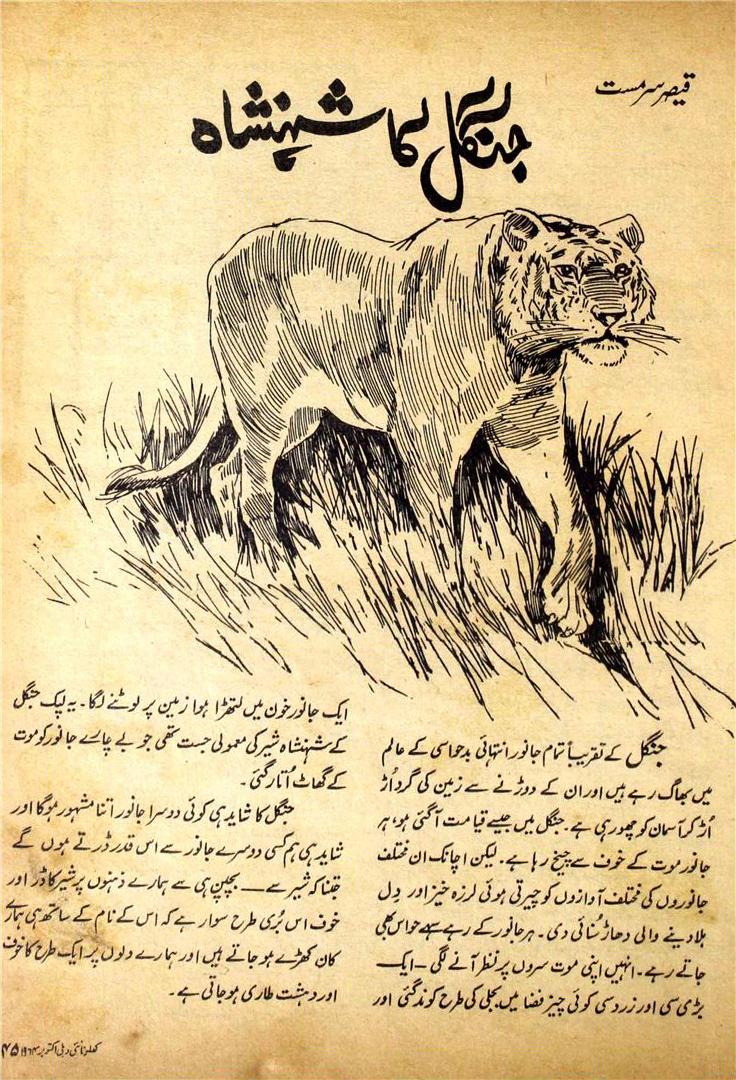 قیصر سرمست
جنگل کا شہنشاہ
جنگل کے تقریباً تمام جانور انتہائی بدحواسی کے عالم
میں بھاگ رہے ہیں اور ان کے دوڑنے سے زمین کی گرد اُڑ
اُڑ کر آسمان کو چھو رہی ہے۔ جنگل میں جیسے قیامت آ گئی ہو، ہر
جانور موت کے خوف سے چیخ رہا ہے۔ لیکن اچانک ان مختلف
جانوروں کی مختلف آوازوں کو چیرتی ہوئی لرزہ خیز اور دِل
ہلا دینے والی دھاڑ سُنائی دی۔ ہر جانور کے رہے سہے حواس بھی
جاتے رہے۔ انہیں اپنی موت سروں پر نظر آنے لگی — ایک
بڑی سی اور زرد سی کوئی چیز فضا میں بجلی کی طرح کوند گئی اور
ایک جانور خون میں لتھڑا ہوا زمین پر لوٹنے لگا۔ یہ لپک جنگل
کے شہنشاہ شیر کی معمولی جست تھی جو بے چارے جانور کو موت
کے گھاٹ اُتار گئی۔
جنگل کا شاید ہی کوئی دوسرا جانور اتنا مشہور ہو گا اور
شاید ہی ہم کسی دوسرے جانور سے اس قدر ڈرتے ہوں گے
جتنا کہ شیر سے — بچپن ہی سے ہمارے ذہنوں پر شیر کا ڈر اور
خوف اس بُری طرح سوار ہے کہ اس کے نام کے ساتھ ہی ہمارے
کان کھڑے ہو جاتے ہیں اور ہمارے دلوں پر ایک طرح کا خوف
اور دہشت طاری ہو جاتی ہے۔
کھلونا نئی دہلی اکتوبر ۱۹۶۴ء ۴۵